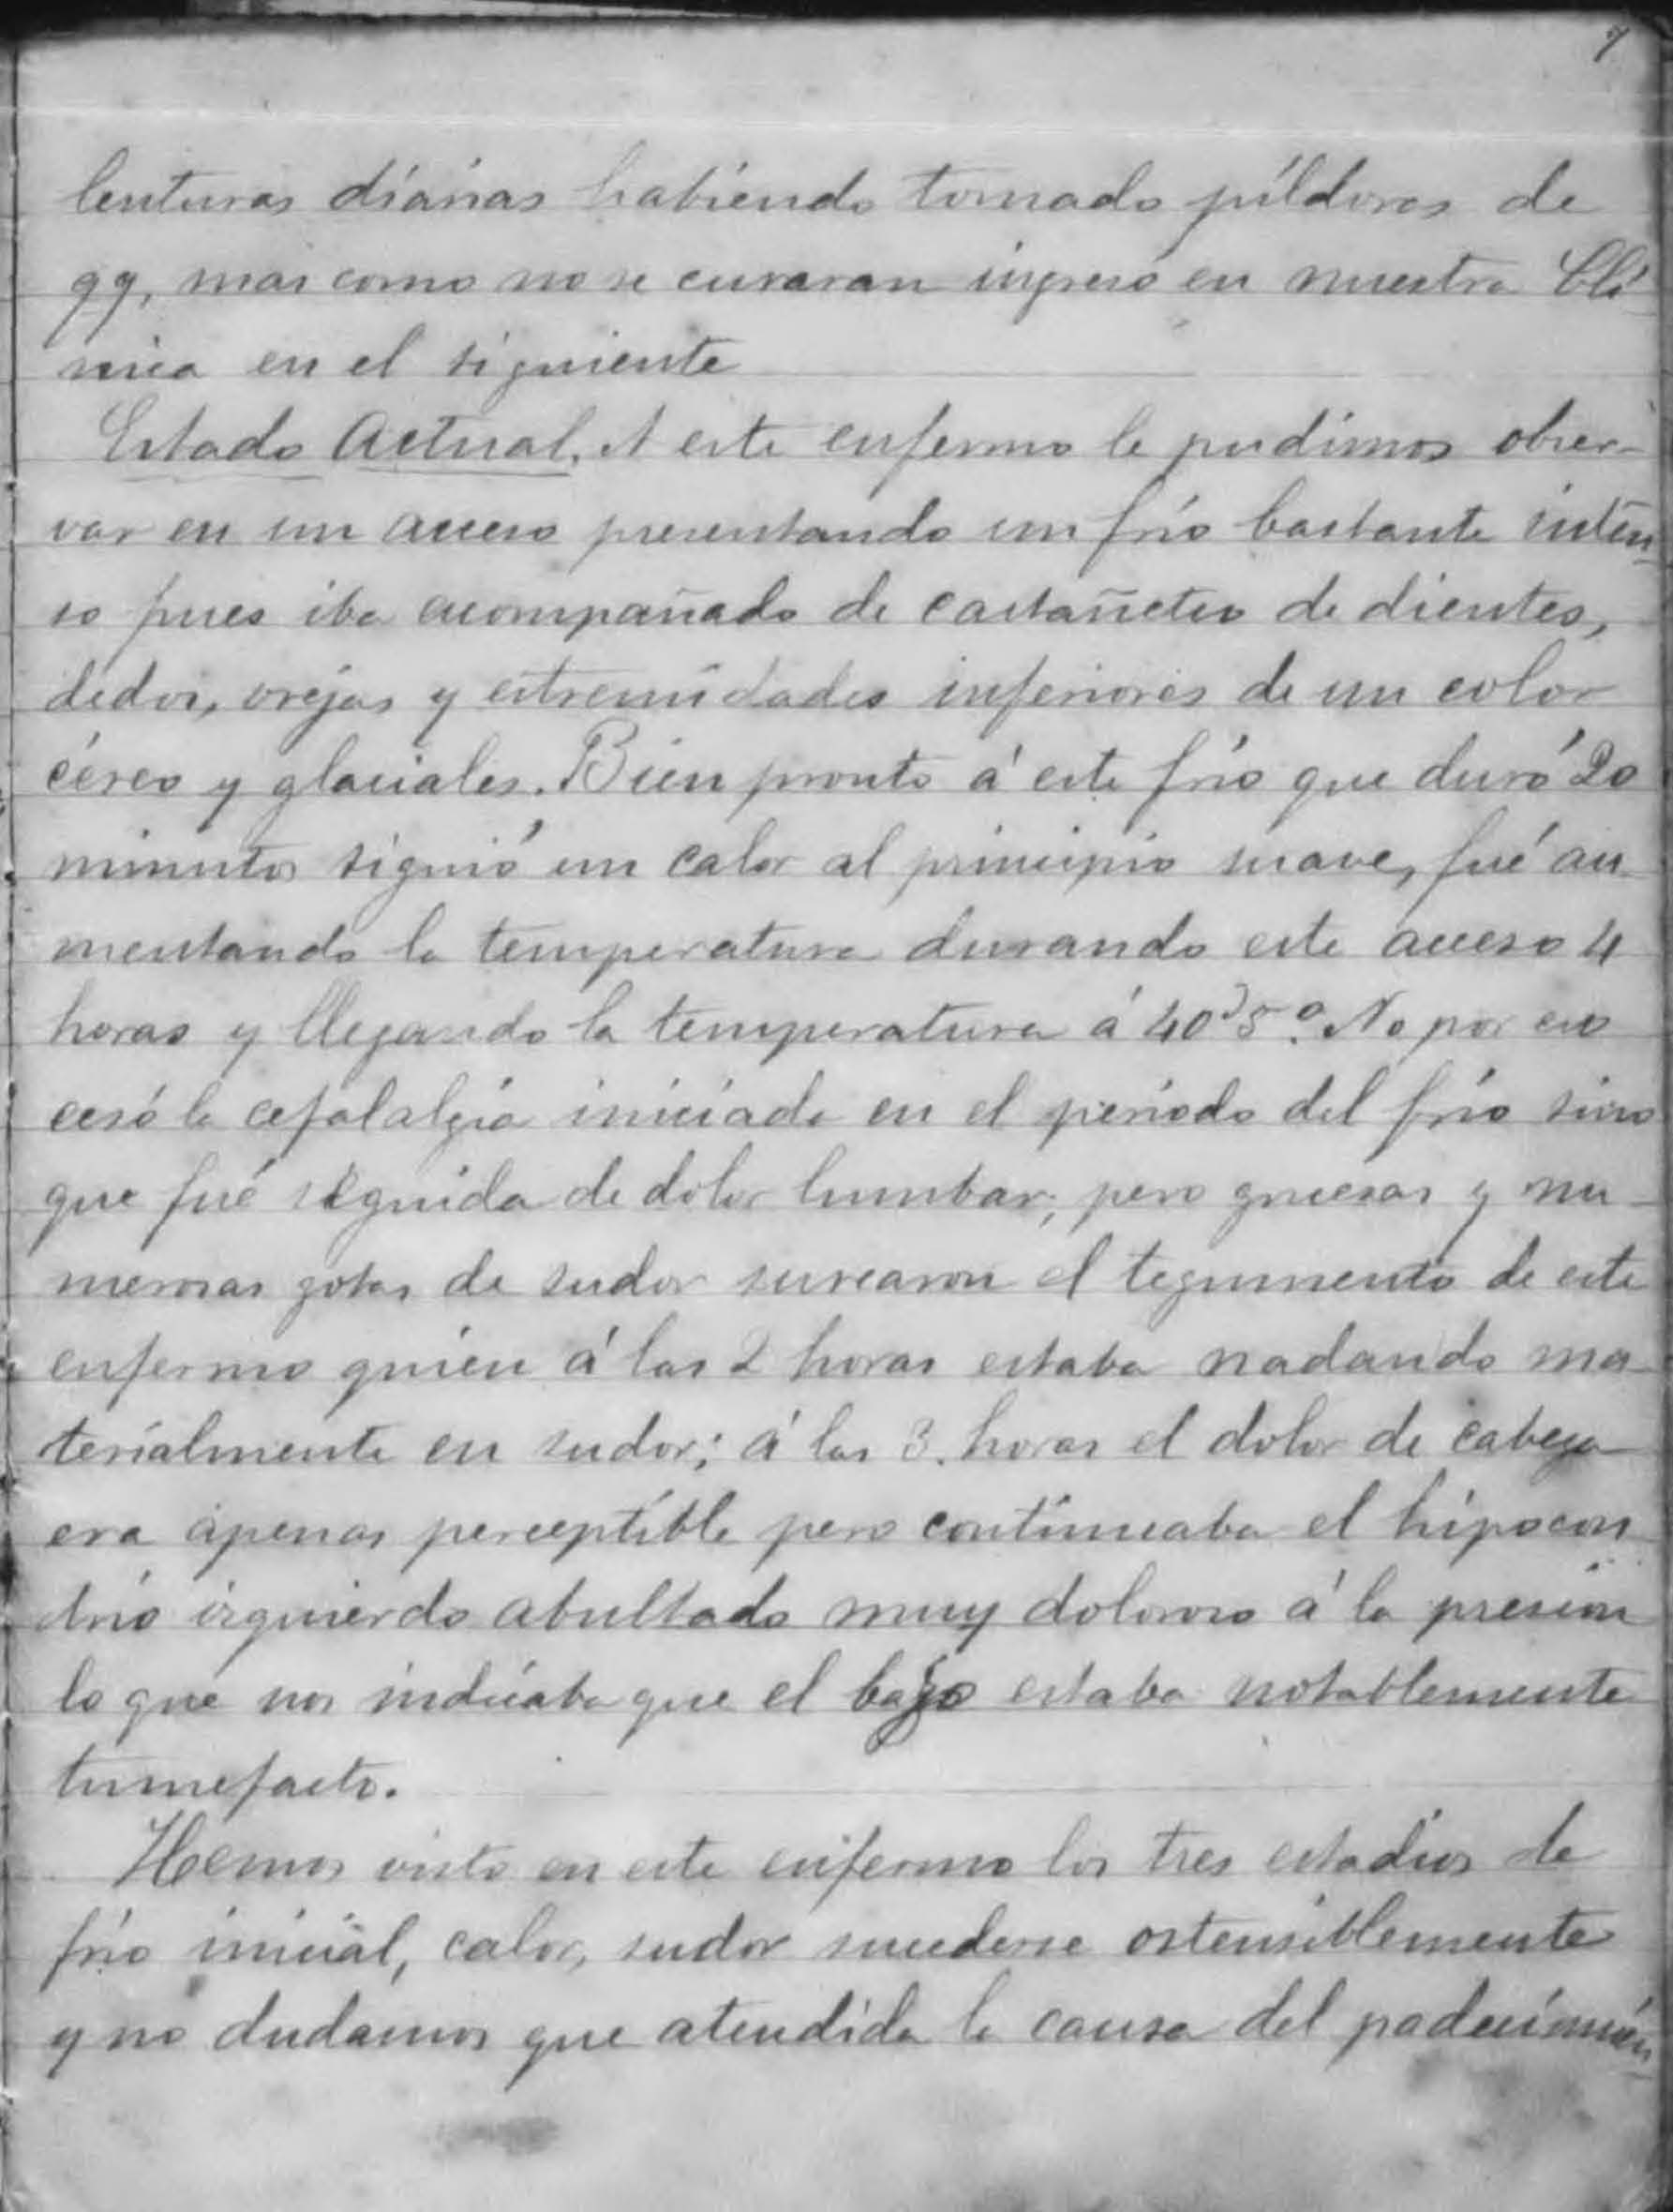 lenturas diarias habiendo tomado píldoras de
qq, mas como no se curaran ingresó en nuestra Clí
nica en el siguiente
Estado Actual. A este enfermo le pudimos obser-
var en un acceso presentando un frío bastante inten
so pues iba acompañado de castañeteo de dientes,
dedos, orejas y estremidades inferiores de un color
céreo y glaciales. Bien pronto á este frío que duró 20
minutos siguió un calor al principio suave, fué au
mentando la temperatura durando este acceso 4
horas y llegando la temperatura á 40'5º. No por eso
cesó la cefalalgia iniciada en el período del frío sino
que fué seguida de dolor lumbar; pero gruesas y nu-
merosas gotas de sudor surcaron el tegumento de este
enfermo quién á las 2 horas estaba nadando ma-
terialmente en sudor; á las 3 horas el dolor de cabeza
era apenas perceptible pero continuaba el hipocon
drio izquierdo abultado muy doloroso á la presión
lo que nos indicaba que el bazo estaba notablemente
tumefacto.
Hemos visto en este enfermo los tres estadios de
frío inicial, calor, sudor sucederse ostensiblemente
y no dudamos que atendida la causa del padecimien